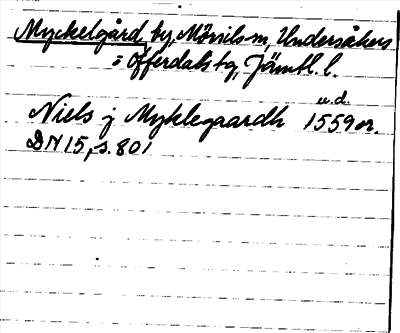 Myckelgård by, Mörsils sn, Undersåkers
= Offerdals tg, Jämtl. l.
u.d.
Niels j Myklegaardh 1559 or.
DN 15, s. 801